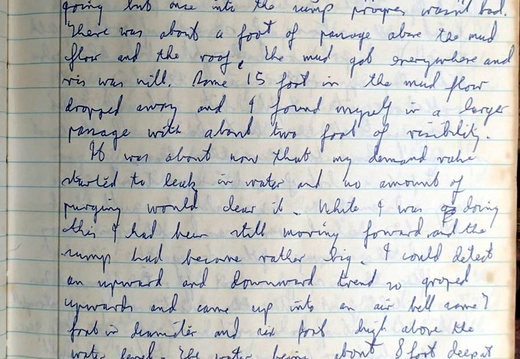 going but once into the sump progress wasn't bad.
There was about a foot of passage above the mud
flow and the roof. The mud got everywhere and
vis was nill. Some 15 foot in the mud flow
dropped away and I found myself in a larger
passage with about two foot of visibility.
It was about now that my demand valve
started to leak in water and no amount of
purging would clear it. While I was doing
this I had been still moving foward and the
sump had become rather big. I could detect
an upward and downward trend so groped
upwards and came up into an air bell some 7
foot in diameter and six foot high above the
water level. The water being about 8 foot deep at